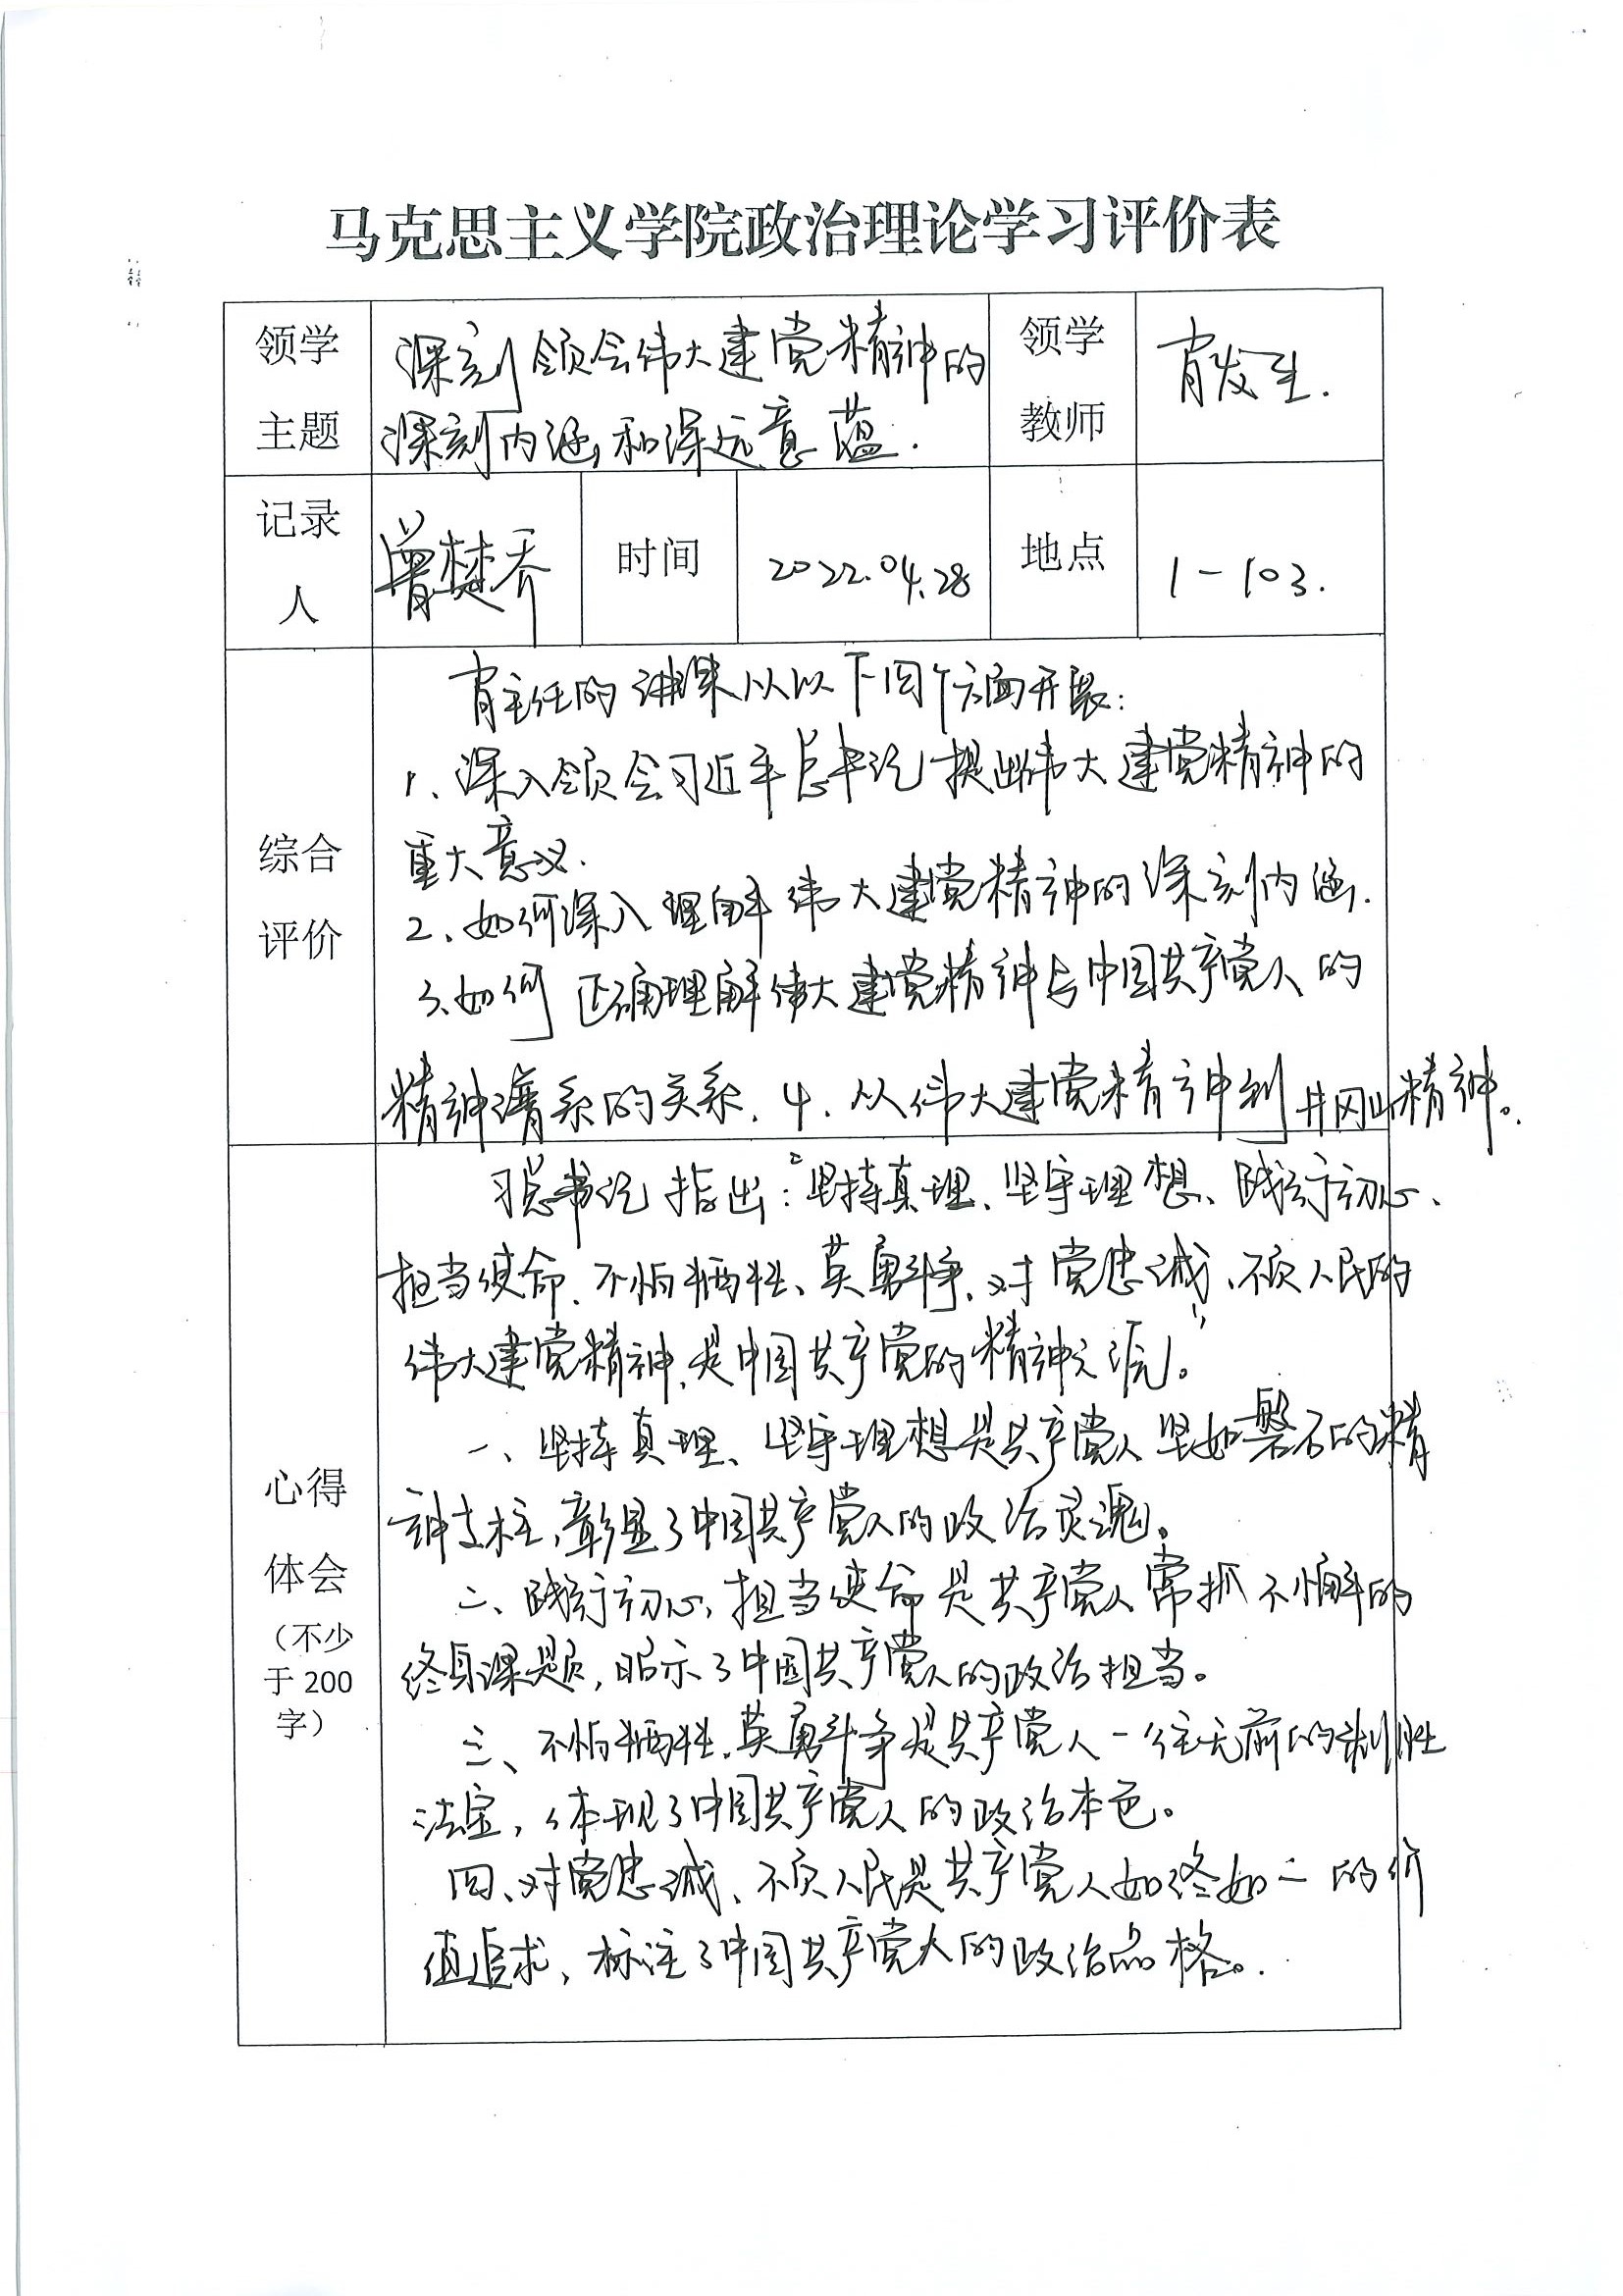 马克思主义学院政治理论学习评价表
领学
主题
深刻领会伟大建党精神的
深刻内涵和深远意蕴.
领学
教师
肖发生.
记录
人
曾楚乔
时间
2022.04.28
地点
1-103.
综合
评价
肖主任的讲课从以下四个方面开展:
1、深入领会习近平总书记提出伟大建党精神的
重大意义.
2、如何深入理解伟大建党精神的深刻内涵.
3、如何正确理解伟大建党精神与中国共产党人的
精神谱系的关系. 4. 从伟大建党精神到井冈山精神。
心得
体会
（不少
于 200
字）
习总书记指出:“坚持真理、坚守理想、践行初心、
担当使命、不怕牺牲、英勇斗争、对党忠诚、不负人民的
伟大建党精神,是中国共产党的精神之源”。
一、坚持真理、坚守理想是共产党人坚如磐石的精
神支柱,彰显了中国共产党人的政治灵魂。
二、践行初心,担当使命是共产党人常抓不懈的
终身课题,昭示了中国共产党人的政治担当。
三、不怕牺牲、英勇斗争是共产党人一往无前的制胜
法宝,体现了中国共产党人的政治本色。
四、对党忠诚、不负人民是共产党人如终如一的价
值追求,标注了中国共产党人的政治品格。